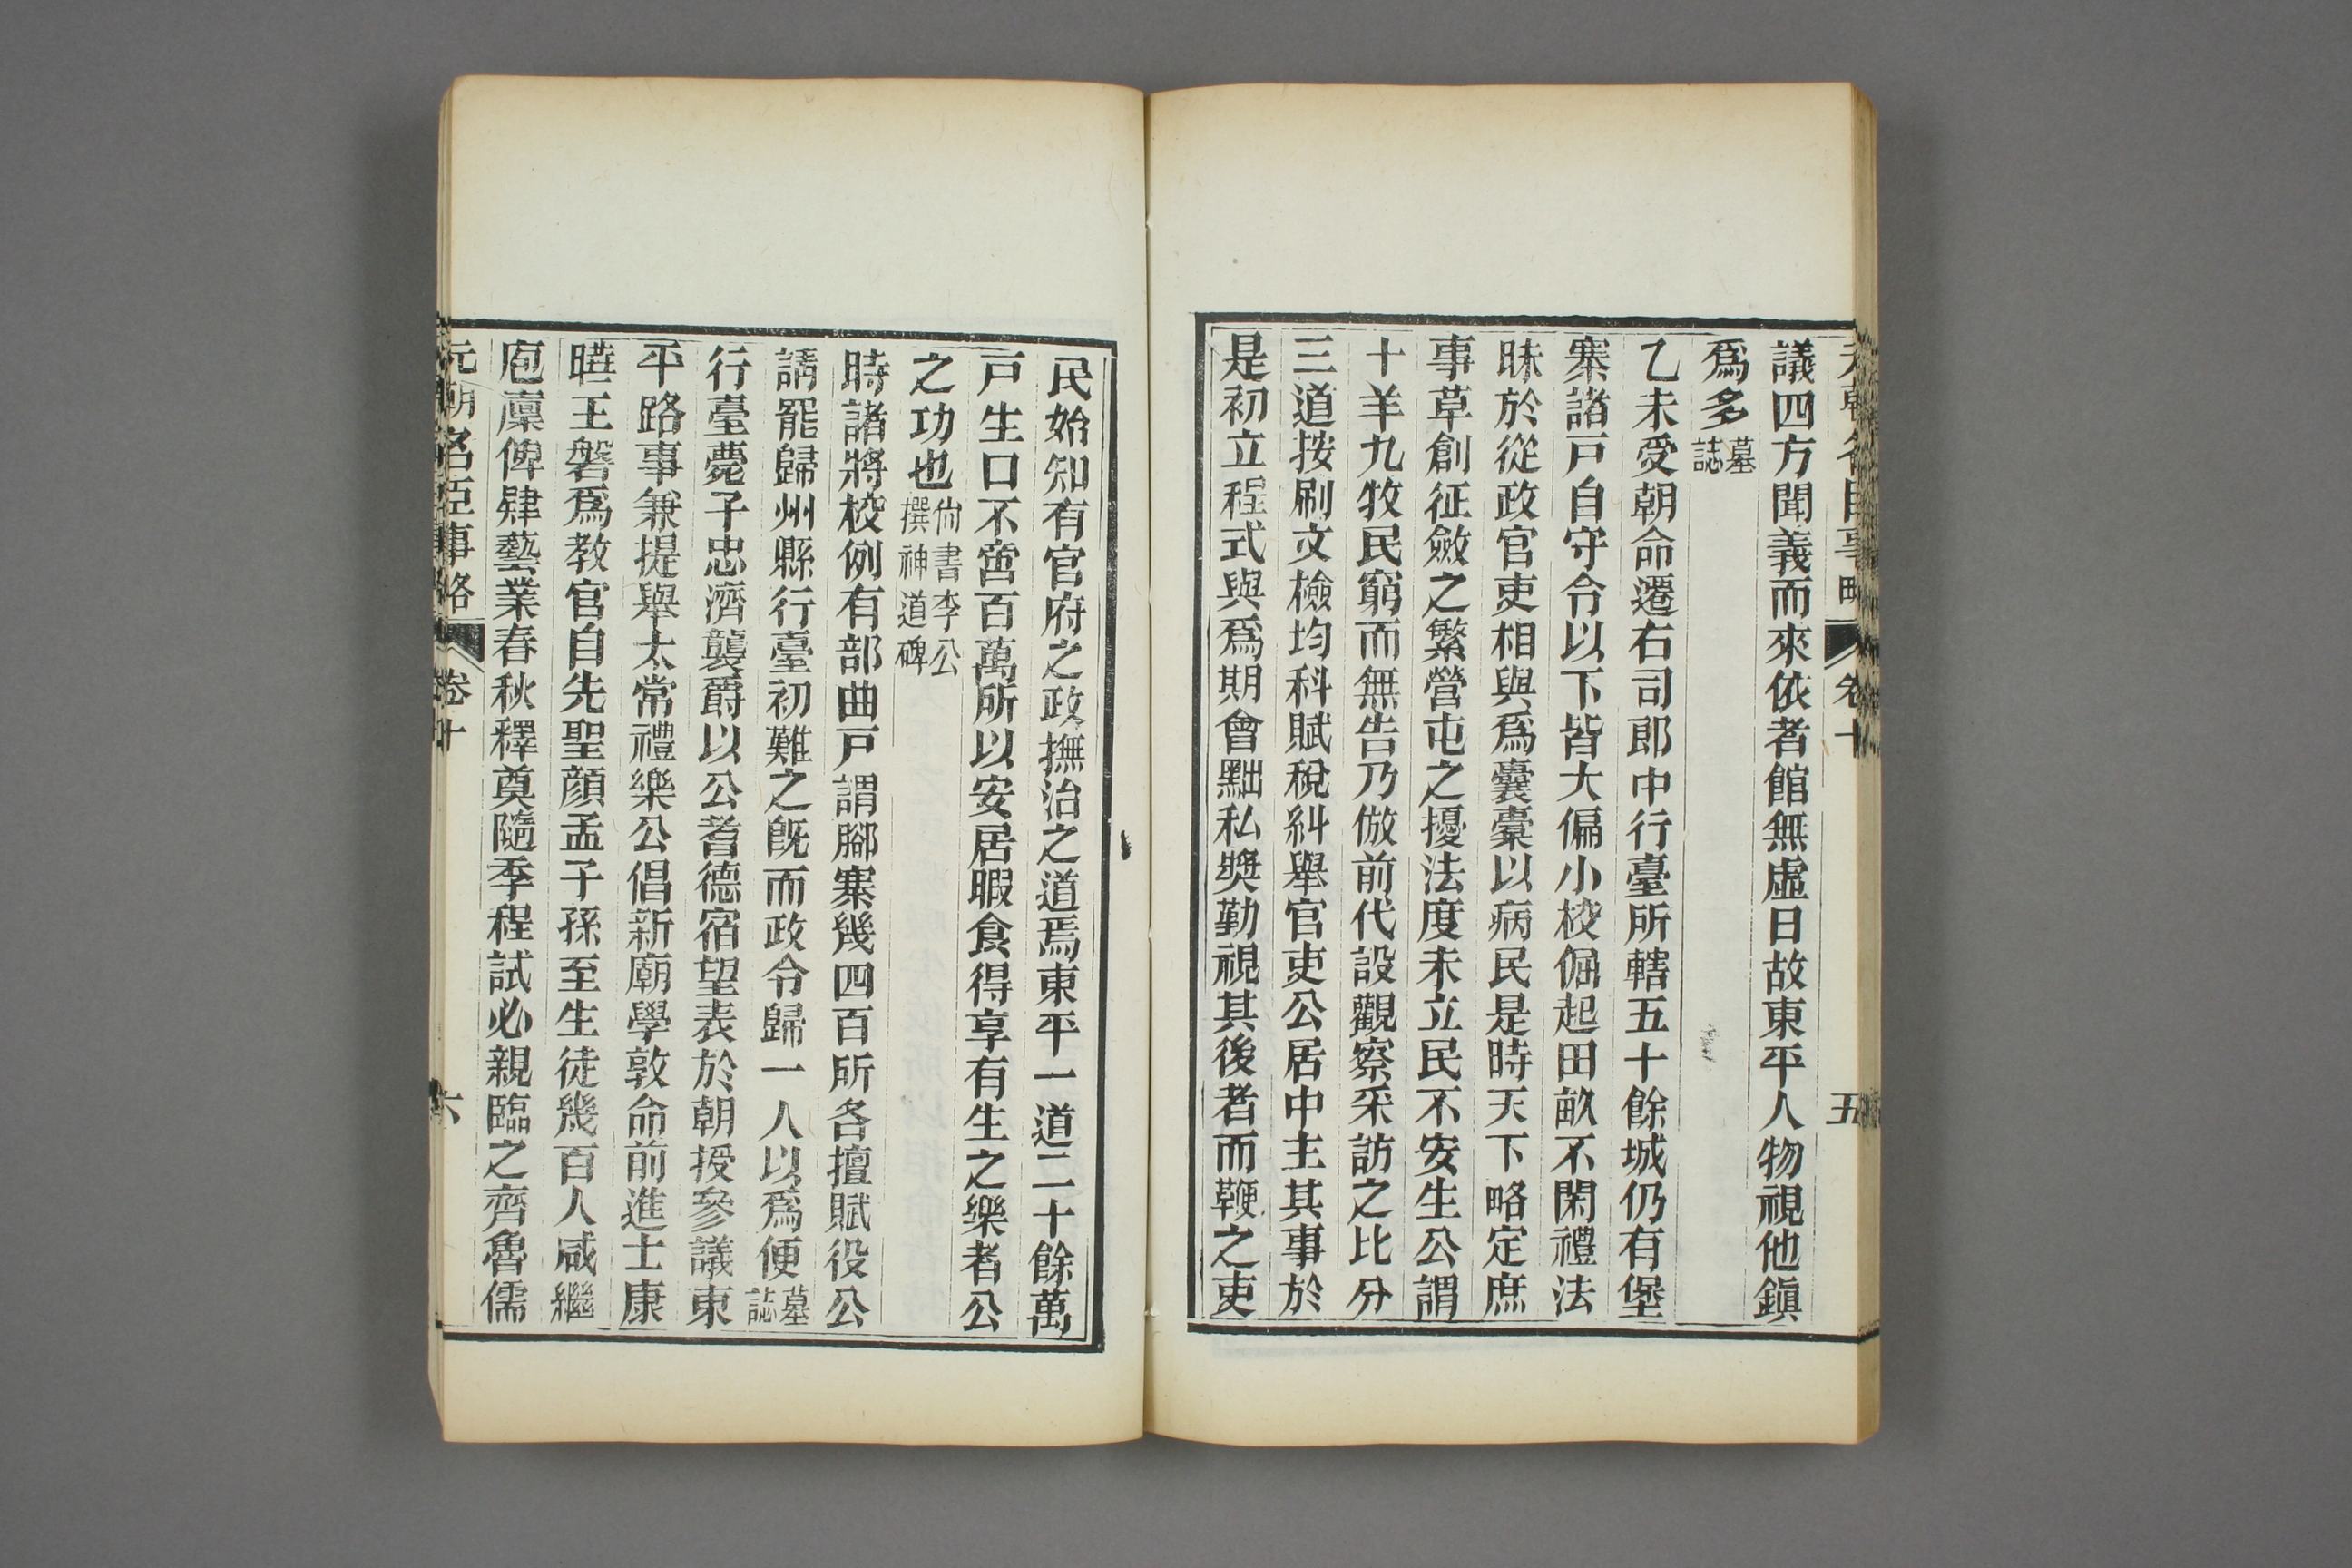 議四方聞義而來依者館無虛日故東平人物視他鎭
爲多墓誌
乙未受朝命遷右司郎中行臺所轄五十餘城仍有堡
寨諸戸自守令以下皆大偏小校倔起田畝不閑禮法
昧於從政官吏相與爲囊橐以病民是時天下略定庶
事草創征斂之繁營屯之擾法度未立民不安生公謂
十羊九牧民窮而無告乃倣前代設觀察采訪之比分
三道按刷文檢均科賦稅糾舉官吏公居中主其事於
是初立程式與爲期會黜私奬勤視其後者而鞭之吏
民始知有官府之政撫治之道焉東平一道二十餘萬
戸生口不啻百萬所以安居暇食得享有生之樂者公
之功也尙書李公撰神道碑
時諸將校例有部曲戸謂腳寨幾四百所各擅賦役公
請罷歸州縣行臺初難之旣而政令歸一人以爲便墓誌
行臺薨子忠濟襲爵以公耆德宿望表於朝授參議東
平路事兼提舉太常禮樂公倡新廟學敦命前進士康
曄王磐爲教官自先聖顔孟子孫至生徒幾百人咸繼
庖廩俾肄藝業春秋釋奠隨季程試必親臨之齊魯儒
元朝名臣事略 卷十 六